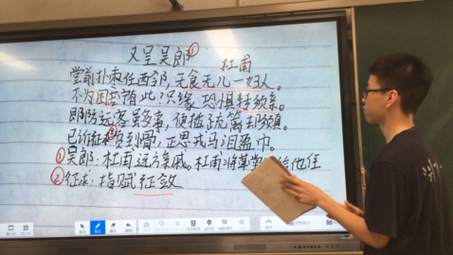 又呈吴郎①
杜甫
堂前扑枣任西邻，无食无儿一妇人。
不为困穷宁此？只缘恐惧转须亲。
即防远客多事，便插疏篱却须。
已诉征求②贫到骨，正思戎马泪盈巾。
①吴郎：杜甫远方亲戚。杜甫将草堂给他住
②征求：指赋敛